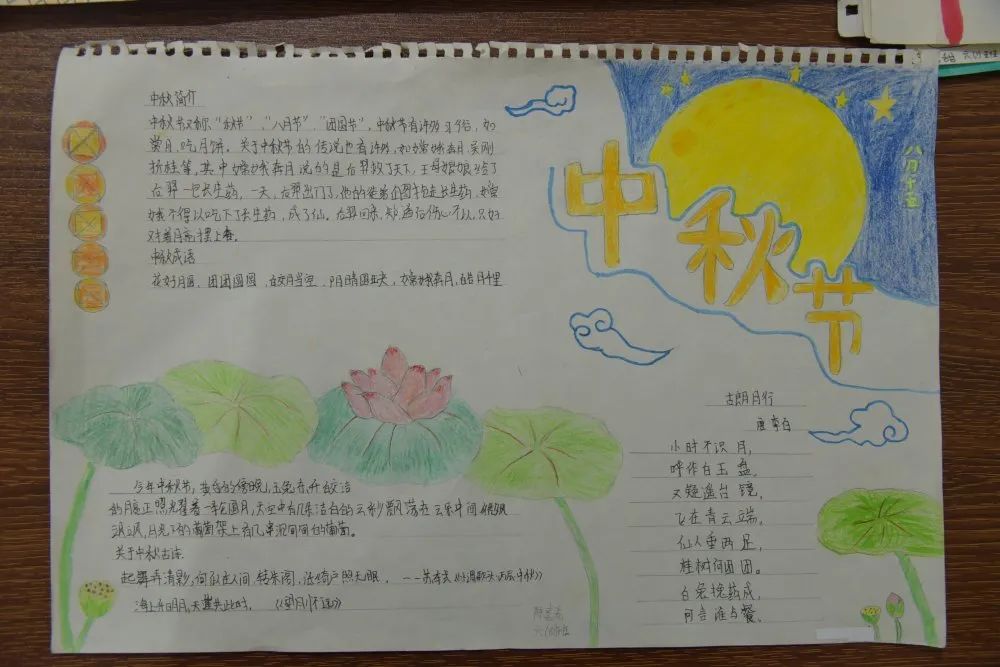 中秋节
八月十五
中秋简介
中秋节又称“秋节”、“八月节”、“团圆节”，中秋节有许多习俗，如
赏月，吃月饼。关于中秋节的传说也有许多，如嫦娥奔月，吴刚
折桂等，其中嫦娥奔月说的是后羿救了天下，王母娘娘给了
后羿一包长生药，一天，后羿出门了，他的徒弟企图抢走长生药，嫦
娥不得以吃下了长生药，成了仙。后羿回来，知道后伤心不以，只好
对着月亮摆上
中秋成语
花好月圆、团团圆圆、皎月当空、阴晴圆缺、嫦娥奔月，皓月千里
今年中秋节，
的月亮正照耀着 天空中有几朵洁白的云彩飘落在
月光下的葡萄架上有几串 的葡萄。
关于中秋古诗：
起舞弄清影，何似在人间，转朱阁，低绮户照无眠，
海上升明月，天涯共此时，
古朗月行
唐 李白
小时不识月，
呼作白玉盘，
又疑瑶台镜，
飞在青云端，
仙人垂两足，
桂树何团团。
白兔捣药成，
问言谁与餐、